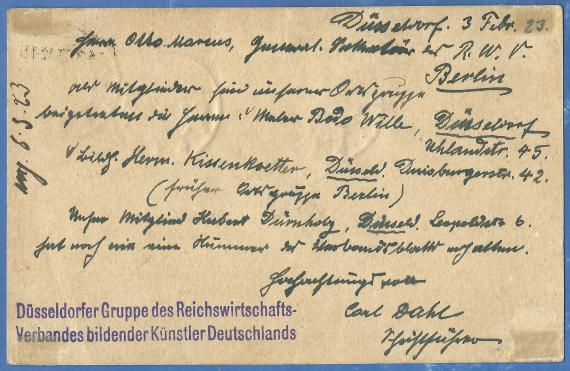 Düsseldorf. 3 Febr. 23.
Herrn Otto Marcus, General. Sekretär der R. W. V.
Berlin
als Mitglieder sind unserer Ortsgruppe
beigetreten die Herren: Maler Bodo Wille, Düsseldorf
Uhlandstr. 45.
Bildh. Herm. Kissenkoetter, Düsseld. Duisburgerstr. 42.
(früher Ortsgruppe Berlin)
Unser Mitglied Herbert Dürnholz, Düsseld. Leopoldstr 6.
hat noch nie eine Nummer des Verbandsblatts erhalten.
Hochachtungsvoll
Carl Dahl
Schriftführer
Düsseldorfer Gruppe des Reichswirtschafts-
Verbandes bildender Künstler Deutschlands
6.3.23